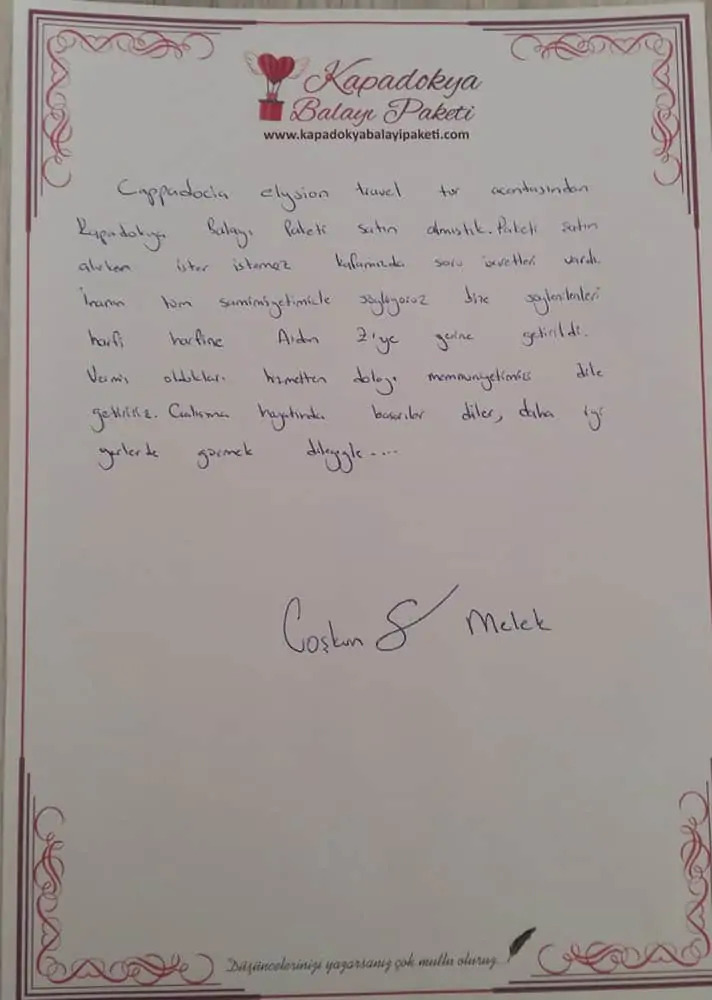 Kapadokya
Balayı Paketi
www.kapadokyabalayipaketi.com
Cappadocia elysion travel tur acentasından
Kapadokya Balayı Paketi satın almıstık. Paketi satın
alırken ister istemez kafamızda soru isaretleri vardı.
İnanın tüm samimiyetimizle söylüyoruz bize söylenilenleri
harfi harfine A'dan Z'ye yerine getirildi.
Vermis oldukları hizmetten dolayı memnuniyetimizi dile
getiririz. Calısma hayatında basarılar diler, daha iyi
yerlerde görmek dileyigle....
Coşkun & Melek
Düşüncelerinizi yazarsanız çok mutlu oluruz...!